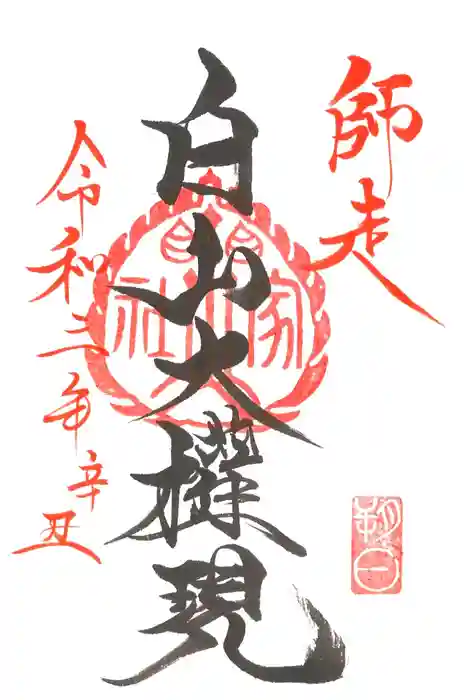 師走
白山大權現
令和三年辛丑